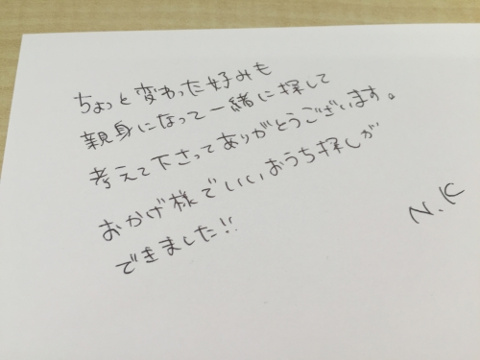 ちょっと変わった好みも
親身になって一緒に探して
考えて下さってありがとうございます。
おかげ様でいいおうち探しが
できました!!
N.K